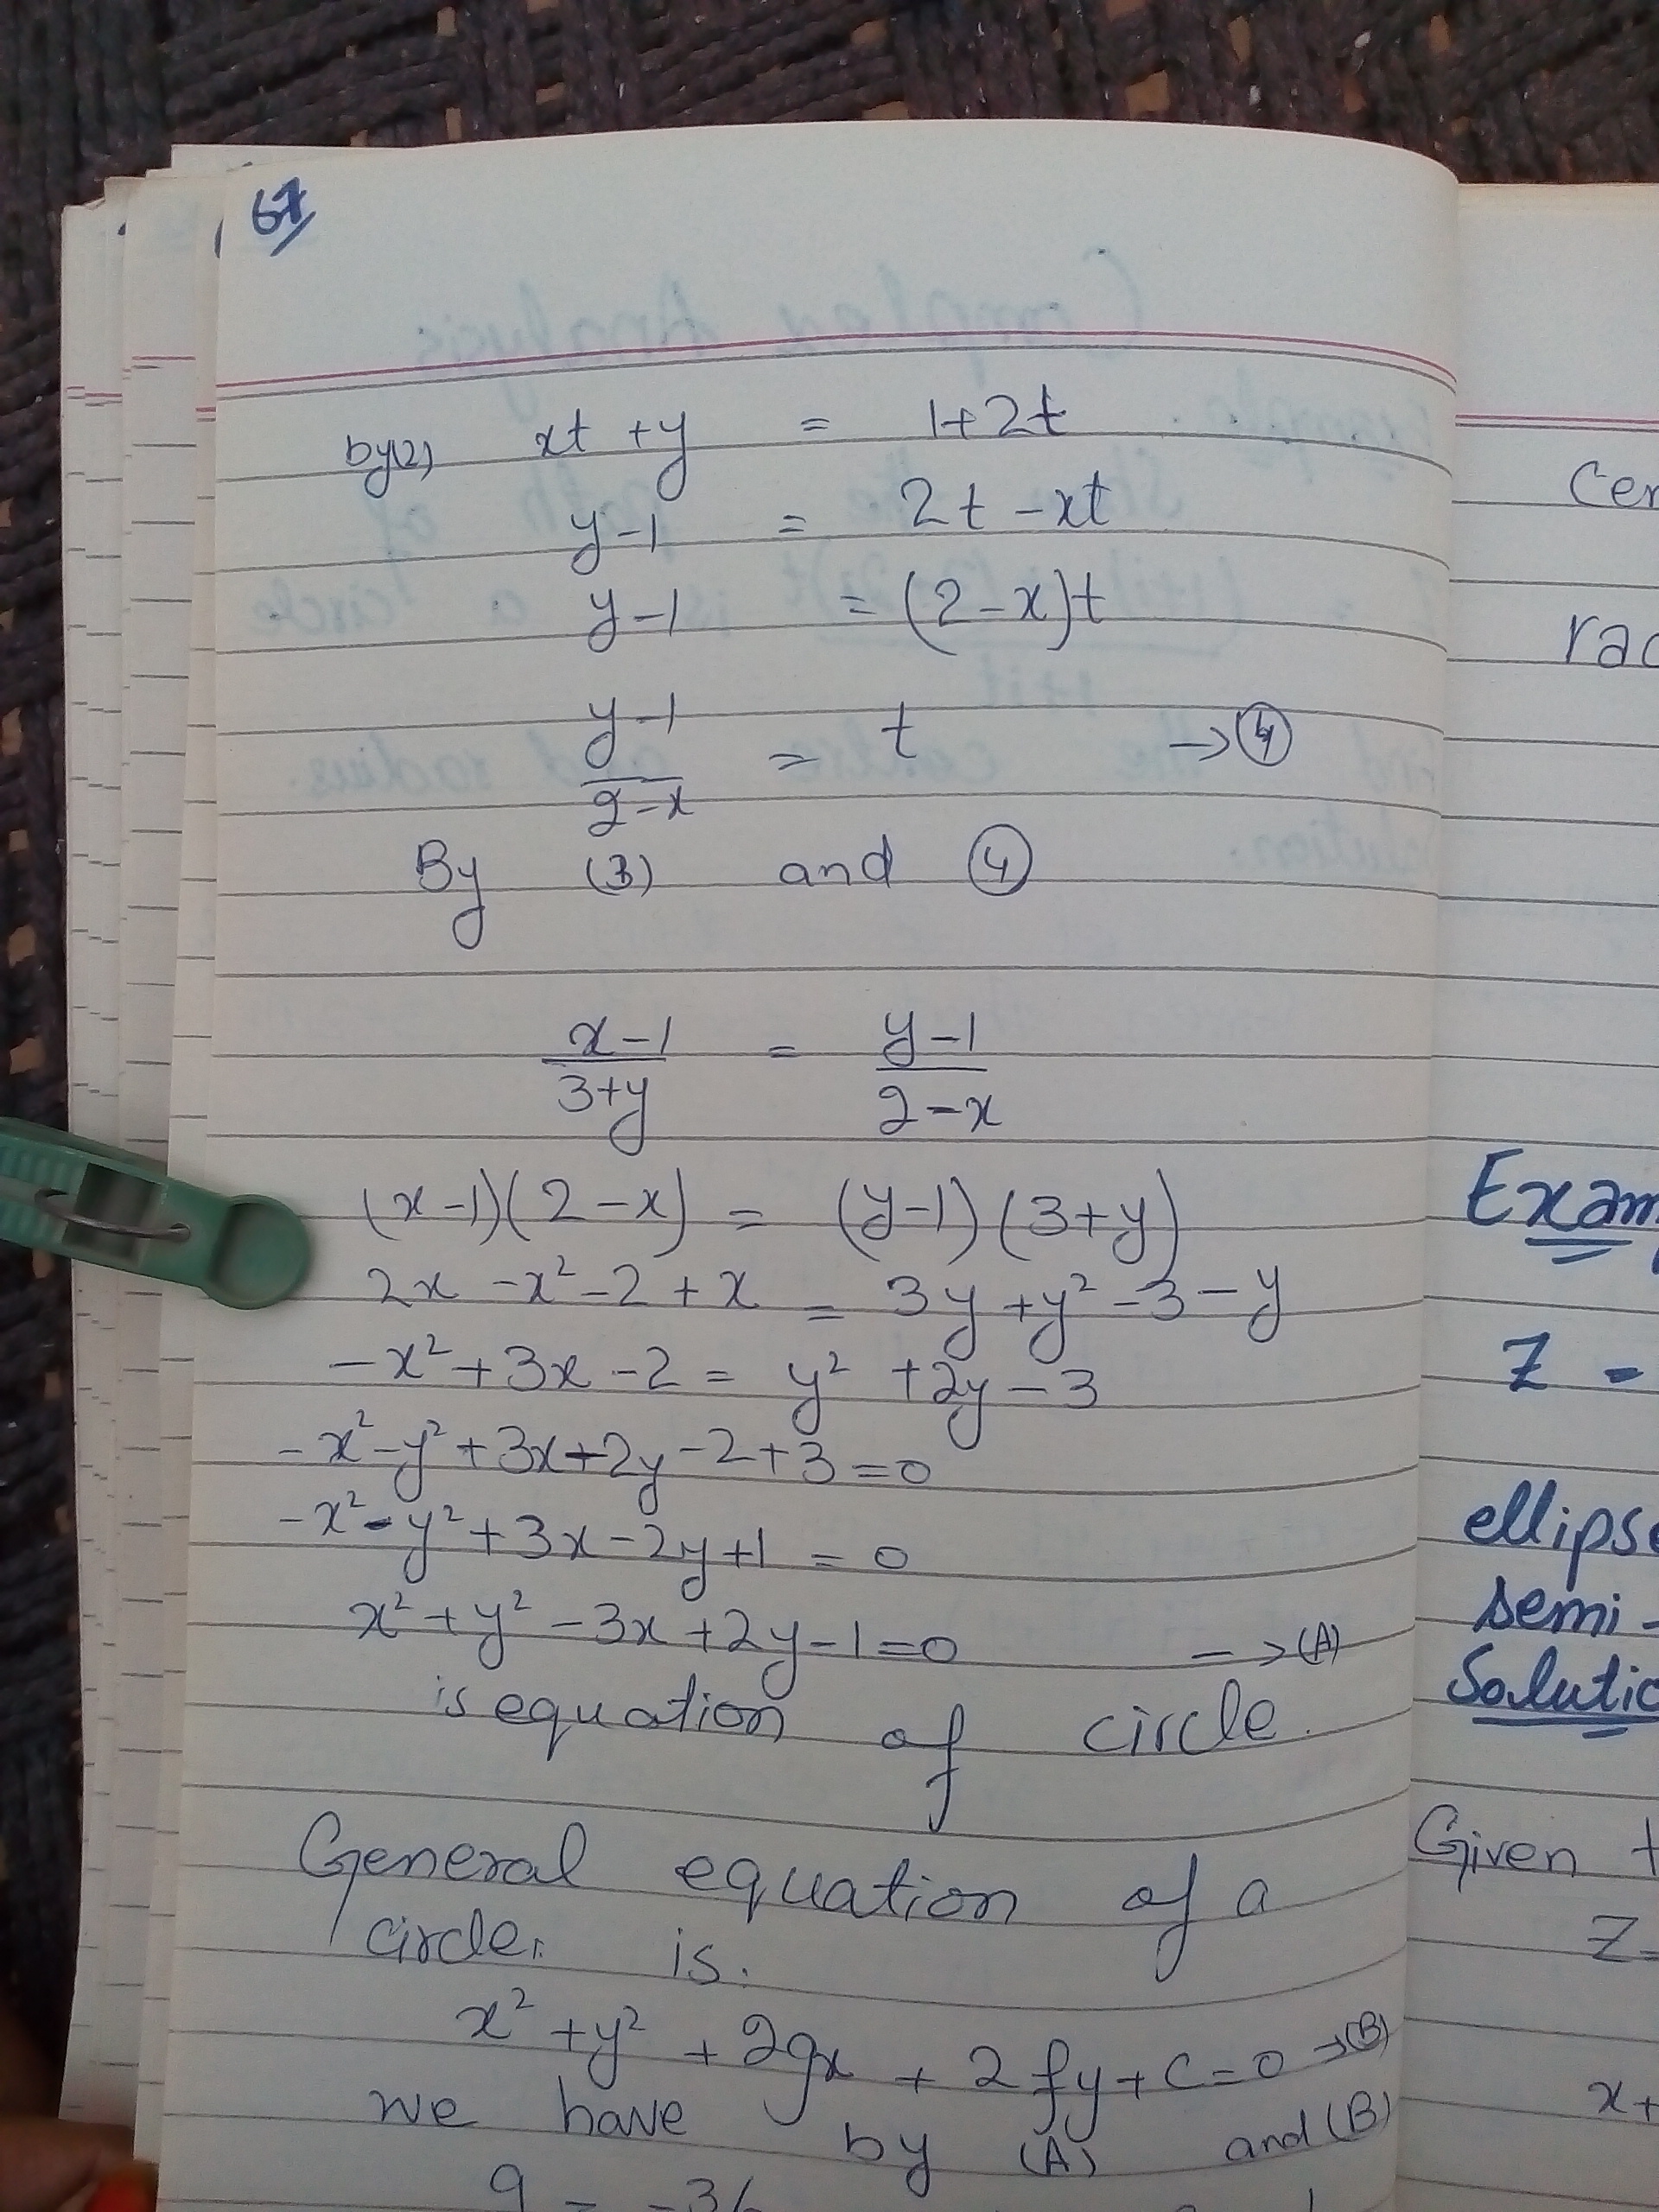 67
by(2) xt + y = 1+2t
y-1 = 2t - xt
y-1 = (2-x)t
y-1/2-x = t → (4)
By (3) and (4)
x-1/3+y = y-1/2-x
(x-1)(2-x) = (y-1)(3+y)
2x - x² - 2 + x = 3y + y² - 3 - y
-x² + 3x - 2 = y² + 2y - 3
-x² - y² + 3x + 2y - 2 + 3 = 0
-x² - y² + 3x - 2y + 1 = 0
x² + y² - 3x + 2y - 1 = 0 → (A)
is equation of circle.
General equation of a
circle. is.
x² + y² + 2gx + 2fy + c = 0 → (B)
we have by (A) and (B)
Cen
rad
Exam
Z =
ellipse
semi-
Solutio
Given t
Z =
x+